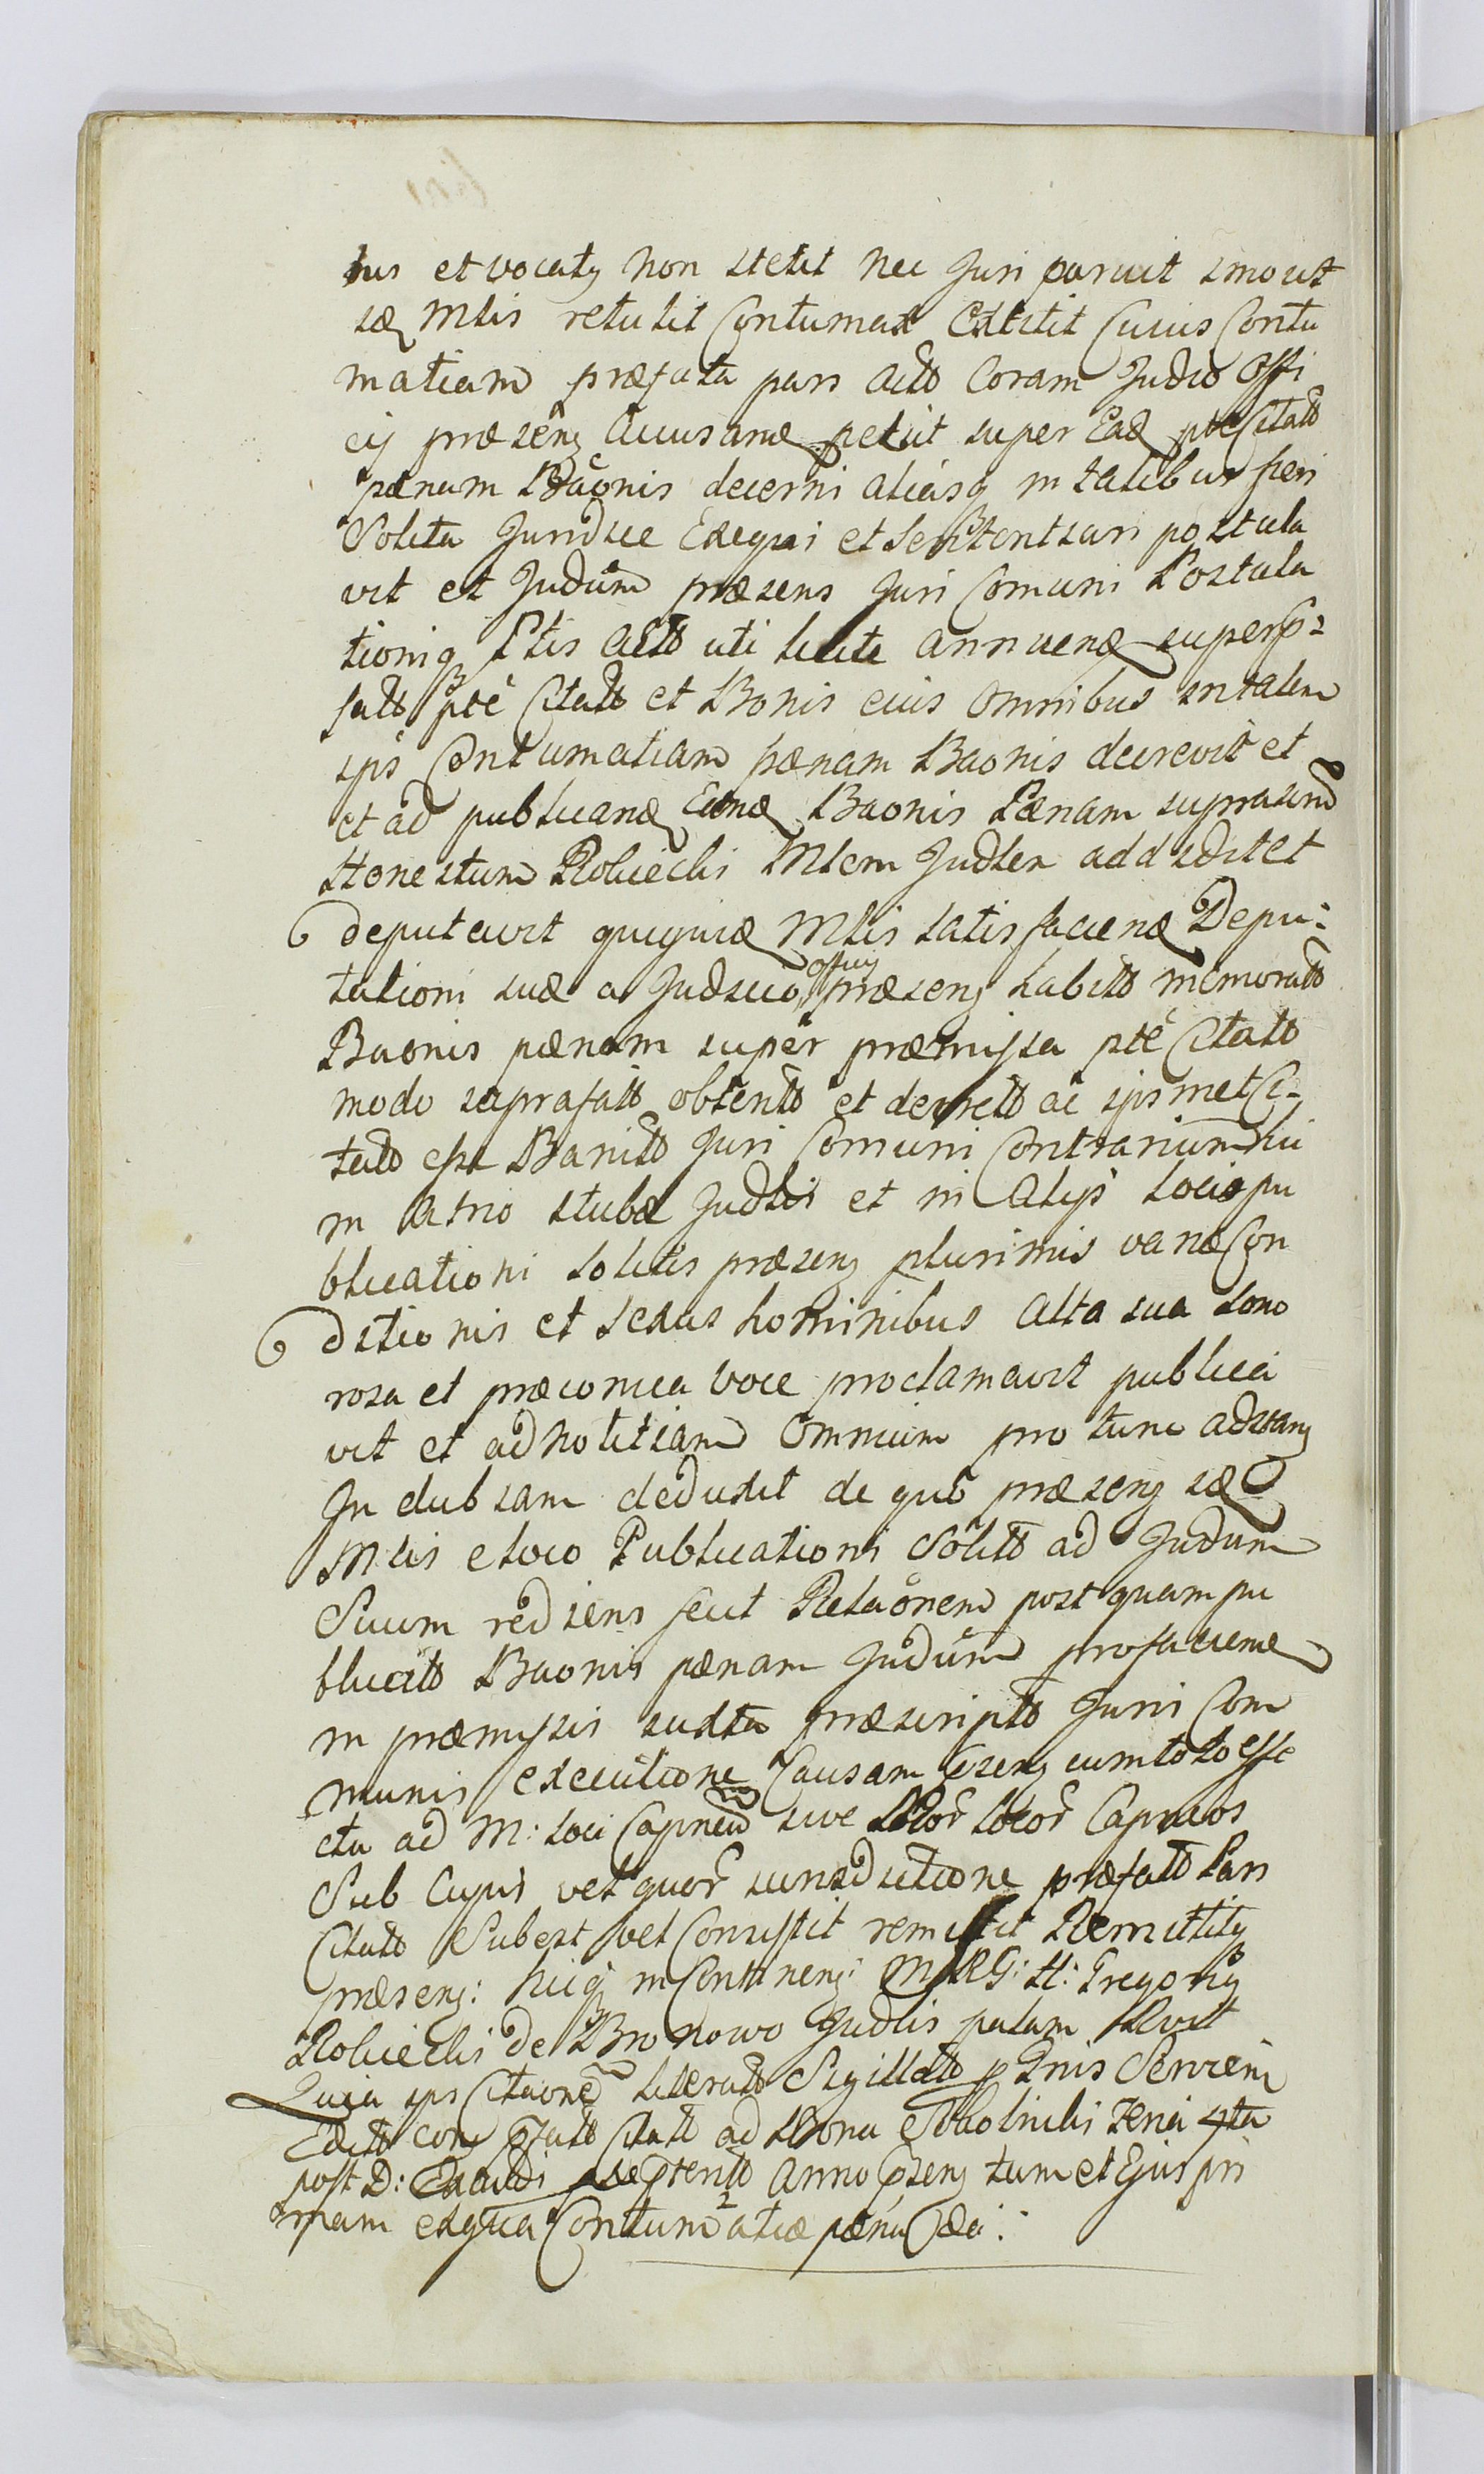 tus et vocatq non stetit nec Juri paruit imo ut
idq Mlis retulit Contumax Extitit Cuius Contu
matiam præfata pars actō Coram Judō Offi
cij præsenq Accusanđ petiit super Eađ pte Citatō
pœnam Bãonis decerni aliasq in talibus fieri
Solita Juridice Exequi et Sententiari postula
vit et Judūm præsens Juri Comuni Postula
tioniq Ptis actō uti licite annuenđ super p-
fatō pte Citatō et Bonis eius omnibus in talem
ips Contumatiam pœnam Baonis decrevit et
et ad publicanđ Eanđ Baonis Pœnam
Honestum Rolviecki Mlem Judlem addidit et
deputavit quiquiđ Mlis satisfacienđ Depu:
tationi suæ a Judicio officij præsenq habitō memoratō
Baonis pœnam super præmissa pte Citatō
modo suprafatō obtentō et decretō ac ipsmet Ci-
tatō esse Banitō Juri Comuni Contrarium hic
in Atrio stubæ Judlis et in Alijs Locis pu
blicationi Solitis præsenq plurimis variæ Con
ditionis et sexus hominibus alta sua sono
rosa et præconica voce proclamavit publica
vit et ad notitiam Omnium pro tunc adstanq
Indubiam deduxit de quō præsenq idq
Mlis e loco Publicationi Solitō ad Judūm
Suum rediens fecit Relãonem post quam pu
blicatō Baonis pœnam Judūm pro faciene
in præmissis iuxta præscriptō Juris Com
munis executione Causam psenq cum toto effe
ctu ad M: Loci Capneū sive Locor Capneos
Sub Cujus vel quor iurisdictione præfatō Pars
Citatō Subest vel Consistit remisit Remittitq
præsenq: hicq in Contⁱnenq: MRG: H: Gregoriq
Rolviecki de Bronowo Judlis palam
Quia ips Citaone Literatō Sigillatō p Dnis
Edictō conq pfatō Citatō ad Bona feria 4ta
post D: Exaudi pteritō Anno psenq tum et Ejus pri
mam exqua Contumatiæ pœna